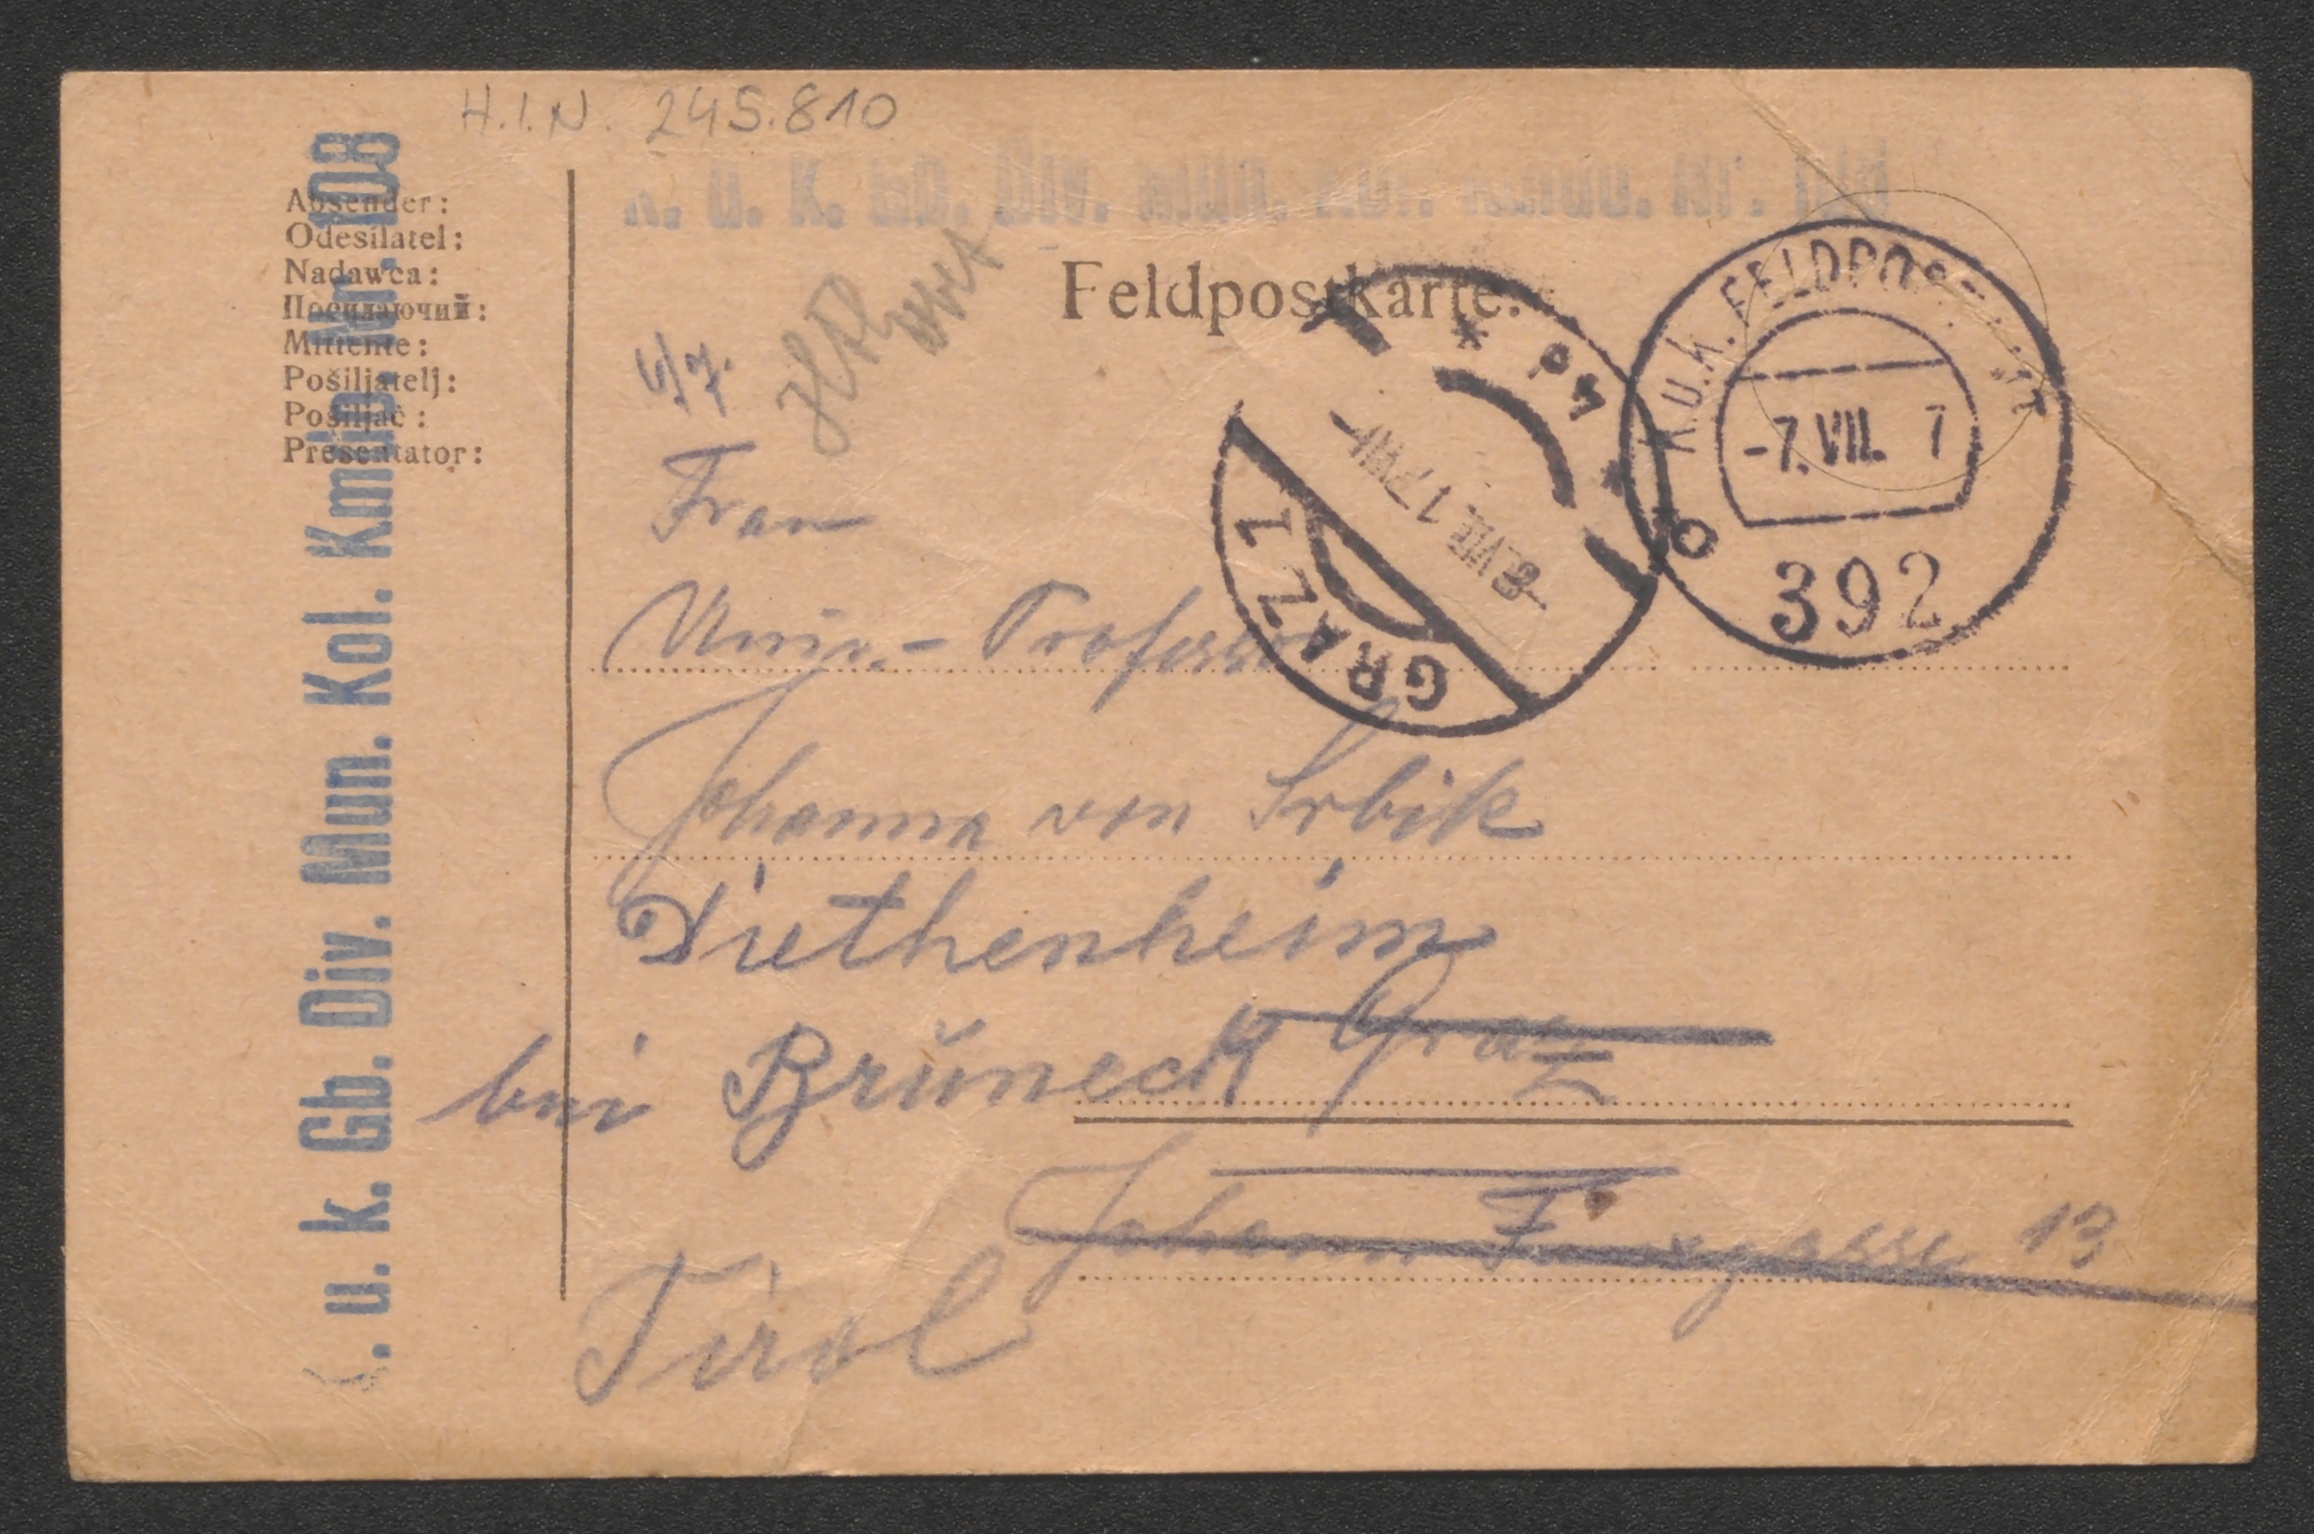 H.I.N. 245.810
K. u. k. Gb. Div. Mun. Kol. Kmdo. Nr. 108
Absender:
Odesílatel:
Nadawca:
Посилаючий:
Mittente:
Pošiljatelj:
Pošiljač:
Presentator:
K. u. k. Gb. Div. Mun. Kol. Kmdo. Nr. 108
Feldpostkarte.
K.u.K. FELDPOST
-7.VII. 7
392
GRAZ 1
-8.VII.17 VII-
6/7.
Frau
Univ.-Professor
Johanna von Srbik
Diethenheim
bei Brŭneck Graz
Johann Fuxgasse 13
Tirol